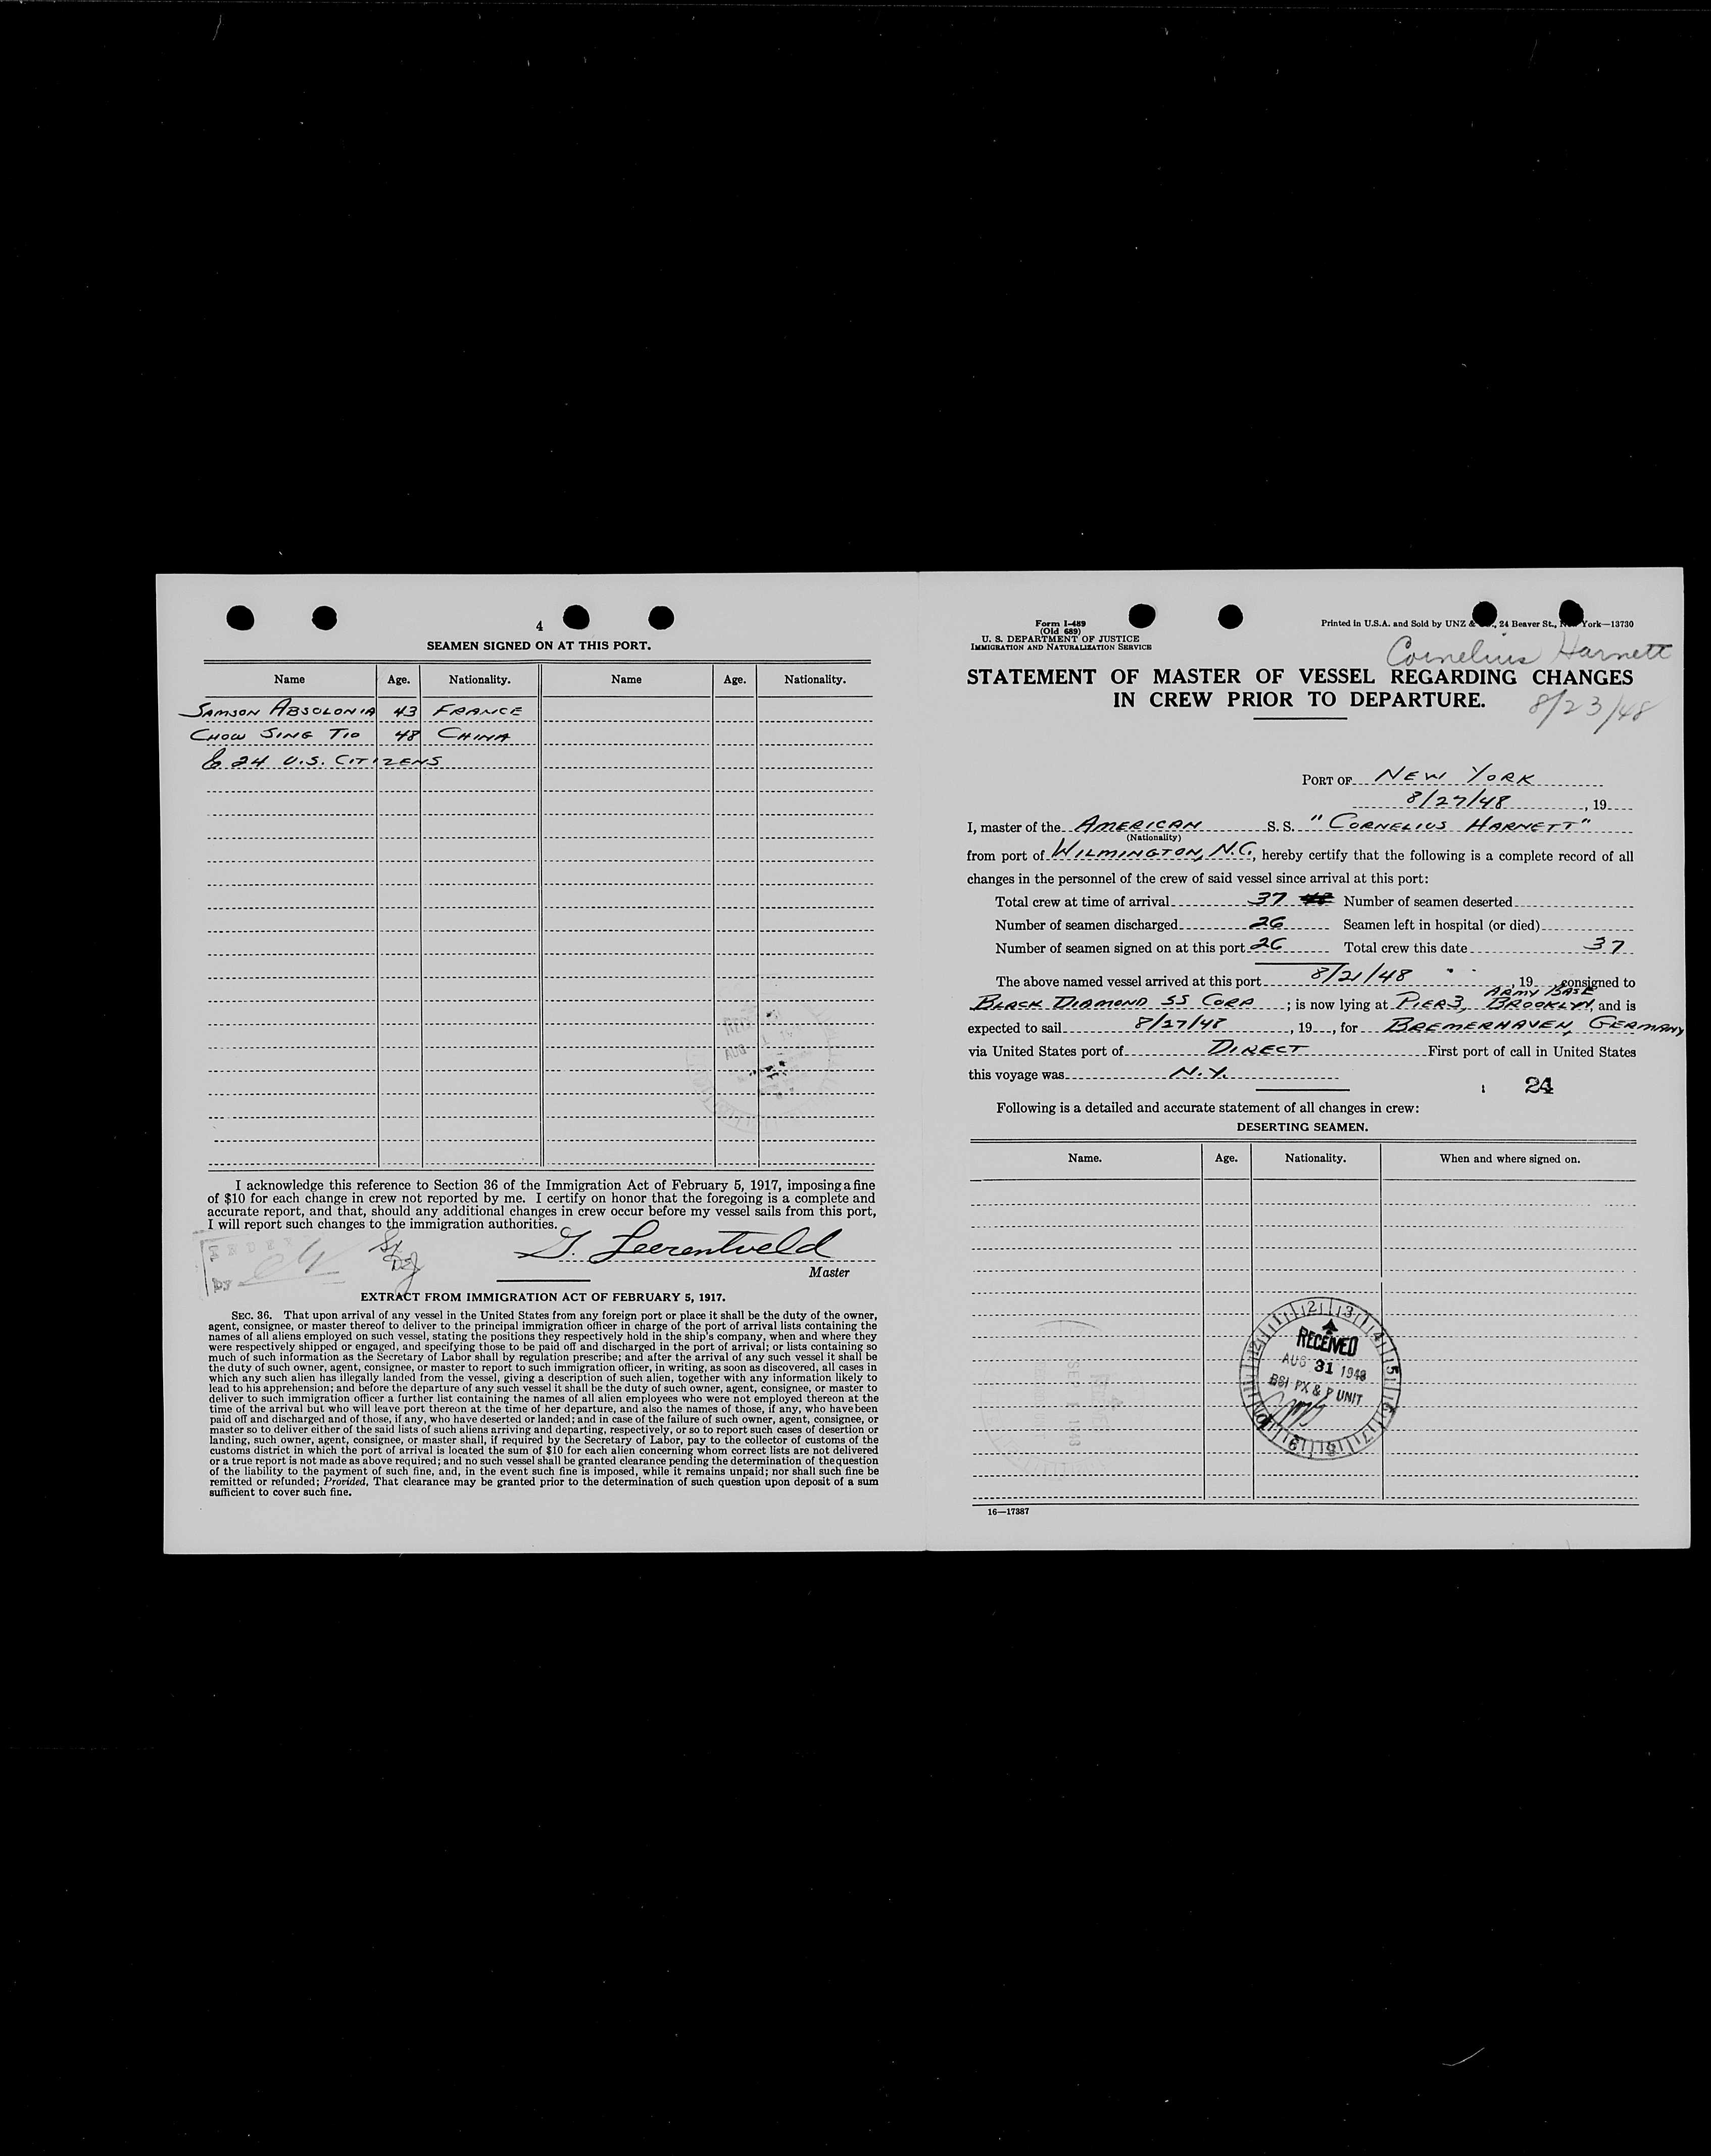 4
SEAMEN SIGNED ON AT THIS PORT.
Name Age. Nationality. Name Age. Nationality.
SAMSON ABSOLONIA 43 FRANCE
CHOW SING TIO 48 CHINA
& 24 U.S. CITIZENS
I acknowledge this reference to Section 36 of the Immigration Act of February 5, 1917, imposing a fine
of $10 for each change in crew not reported by me. I certify on honor that the foregoing is a complete and
accurate report, and that, should any additional changes in crew occur before my vessel sails from this port,
I will report such changes to the immigration authorities.
G. Leerentveld
Master
By
EXTRACT FROM IMMIGRATION ACT OF FEBRUARY 5, 1917.
SEC. 36. That upon arrival of any vessel in the United States from any foreign port or place it shall be the duty of the owner,
agent, consignee, or master thereof to deliver to the principal immigration officer in charge of the port of arrival lists containing the
names of all aliens employed on such vessel, stating the positions they respectively hold in the ship's company, when and where they
were respectively shipped or engaged, and specifying those to be paid off and discharged in the port of arrival; or lists containing so
much of such information as the Secretary of Labor shall by regulation prescribe; and after the arrival of any such vessel it shall be
the duty of such owner, agent, consignee, or master to report to such immigration officer, in writing, as soon as discovered, all cases in
which any such alien has illegally landed from the vessel, giving a description of such alien, together with any information likely to
lead to his apprehension; and before the departure of any such vessel it shall be the duty of such owner, agent, consignee, or master to
deliver to such immigration officer a further list containing the names of all alien employees who were not employed thereon at the
time of the arrival but who will leave port thereon at the time of her departure, and also the names of those, if any, who have been
paid off and discharged and of those, if any, who have deserted or landed; and in case of the failure of such owner, agent, consignee, or
master so to deliver either of the said lists of such aliens arriving and departing, respectively, or so to report such cases of desertion or
landing, such owner, agent, consignee, or master shall, if required by the Secretary of Labor, pay to the collector of customs of the
customs district in which the port of arrival is located the sum of $10 for each alien concerning whom correct lists are not delivered
or a true report is not made as above required; and no such vessel shall be granted clearance pending the determination of the question
of the liability to the payment of such fine, and, in the event such fine is imposed, while it remains unpaid; nor shall such fine be
remitted or refunded; Provided, That clearance may be granted prior to the determination of such question upon deposit of a sum
sufficient to cover such fine.
Form I-489
(Old 689)
U. S. DEPARTMENT OF JUSTICE
IMMIGRATION AND NATURALIZATION SERVICE
Printed in U.S.A. and Sold by UNZ & 24 Beaver St., York—13730
Cornelius Harnett
STATEMENT OF MASTER OF VESSEL REGARDING CHANGES
IN CREW PRIOR TO DEPARTURE.
8/23/48
PORT OF NEW YORK
8/27/48, 19
I, master of the AMERICAN S. S. "CORNELIUS HARNETT"
(Nationality)
from port of WILMINGTON, N.C., hereby certify that the following is a complete record of all
changes in the personnel of the crew of said vessel since arrival at this port:
Total crew at time of arrival 37 Number of seamen deserted
Number of seamen discharged 26 Seamen left in hospital (or died)
Number of seamen signed on at this port 26 Total crew this date 37
The above named vessel arrived at this port 8/21/48, 19, consigned to
BLACK DIAMOND SS CORP; is now lying at PIER 3, ARMY BASE BROOKLYN, and is
expected to sail 8/27/48, 19, for BREMERHAVEN, GERMANY
via United States port of DIRECT First port of call in United States
this voyage was N.Y.
24
Following is a detailed and accurate statement of all changes in crew:
DESERTING SEAMEN.
Name. Age. Nationality. When and where signed on.
RECEIVED
AUG 31 1948
BSI PX & P UNIT
16—17387